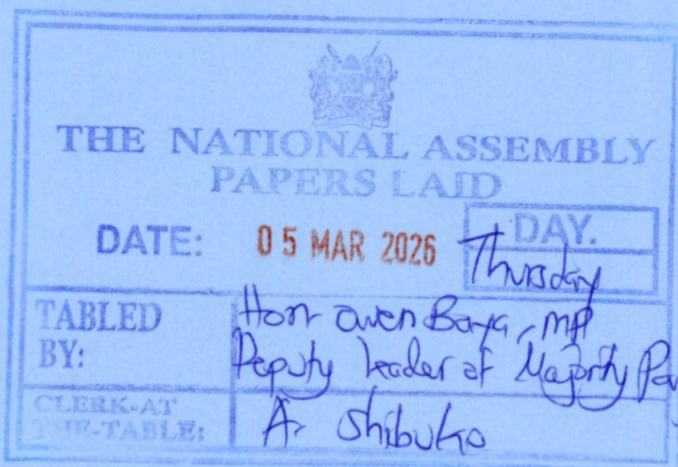 THE NATIONAL ASSEMBLY
PAPERS LAID
DATE: 05 MAR 2026
DAY.
Thursday
TABLED BY:
Hon Owen Baya, MP
Deputy Leader of Majority Par
CLERK-AT THE-TABLE:
A. Shibuko